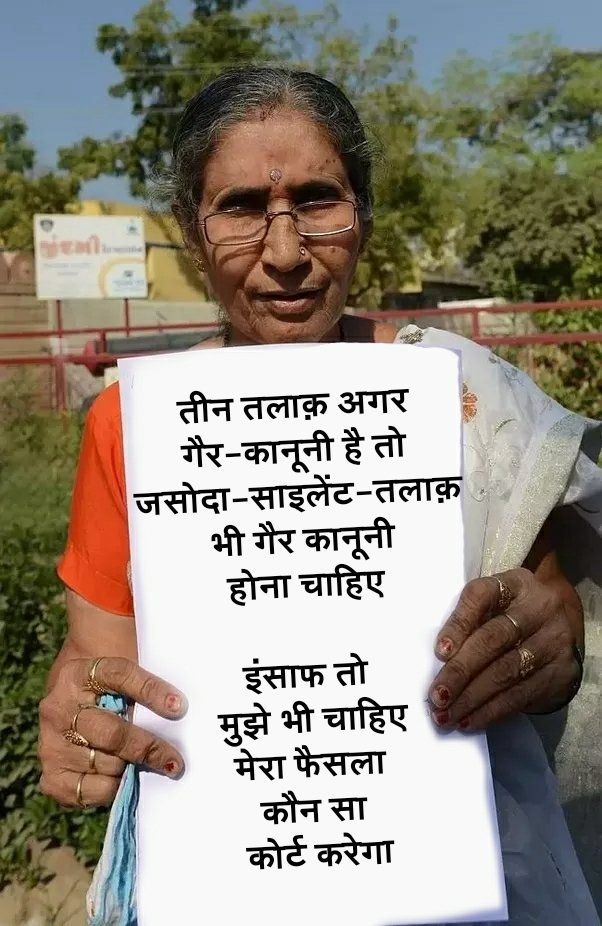 જીંદગી
तीन तलाक़ अगर
गैर-कानूनी है तो
जसोदा-साइलेंट-तलाक़
भी गैर कानूनी
होना चाहिए
इंसाफ तो
मुझे भी चाहिए
मेरा फैसला
कौन सा
कोर्ट करेगा